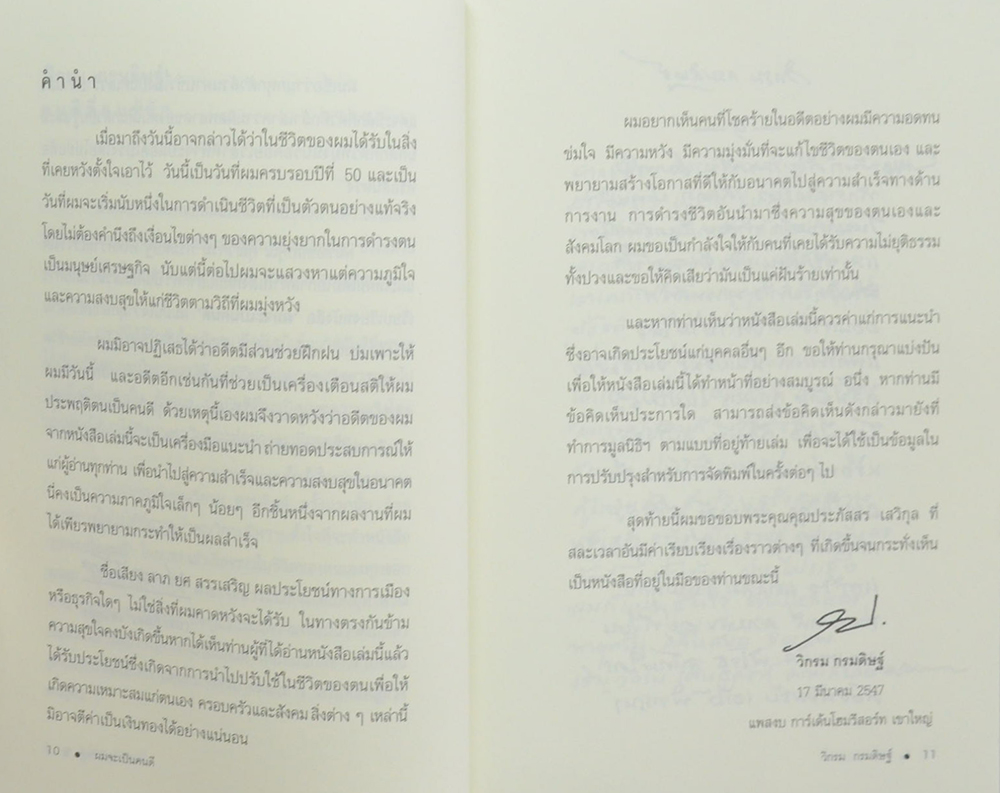 คำนำ
เมื่อมาถึงวันนี้อาจกล่าวได้ว่าในชีวิตของผมได้รับในสิ่ง
ที่เคยหวังตั้งใจเอาไว้ วันนี้เป็นวันที่ผมครบรอบปีที่ 50 และเป็น
วันที่ผมจะเริ่มนับหนึ่งในการดำเนินชีวิตที่เป็นตัวตนอย่างแท้จริง
โดยไม่ต้องคำนึงถึงเงื่อนไขต่างๆ ของความยุ่งยากในการดำรงตน
เป็นมนุษย์เศรษฐกิจ นับแต่นี้ต่อไปผมจะแสวงหาแต่ความภูมิใจ
และความสงบสุขให้แก่ชีวิตตามวิถีที่ผมมุ่งหวัง
ผมมิอาจปฏิเสธได้ว่าอดีตมีส่วนช่วยฝึกฝน บ่มเพาะให้
ผมมีวันนี้ และอดีตอีกเช่นกันที่ช่วยเป็นเครื่องเตือนสติให้ผม
ประพฤติตนเป็นคนดี ด้วยเหตุนี้เองผมจึงวาดหวังว่าอดีตของผม
จากหนังสือเล่มนี้จะเป็นเครื่องมือแนะนำ ถ่ายทอดประสบการณ์ให้
แก่ผู้อ่านทุกท่าน เพื่อนำไปสู่ความสำเร็จและความสงบสุขในอนาคต
นี่คงเป็นความภาคภูมิใจเล็กๆ น้อยๆ อีกชิ้นหนึ่งจากผลงานที่ผม
ได้เพียรพยายามกระทำให้เป็นผลสำเร็จ
ชื่อเสียง ลาภ ยศ สรรเสริญ ผลประโยชน์ทางการเมือง
หรือธุรกิจใดๆ ไม่ใช่สิ่งที่ผมคาดหวังจะได้รับ ในทางตรงกันข้าม
ความสุขใจคงบังเกิดขึ้นหากได้เห็นท่านผู้ที่ได้อ่านหนังสือเล่มนี้แล้ว
ได้รับประโยชน์ซึ่งเกิดจากการนำไปปรับใช้ในชีวิตของตนเพื่อให้
เกิดความเหมาะสมแก่ตนเอง ครอบครัวและสังคม สิ่งต่าง ๆ เหล่านี้
มิอาจตีค่าเป็นเงินทองได้อย่างแน่นอน
10 • ผมจะเป็นคนดี
ผมอยากเห็นคนที่โชคร้ายในอดีตอย่างผมมีความอดทน
ข่มใจ มีความหวัง มีความมุ่งมั่นที่จะแก้ไขชีวิตของตนเอง และ
พยายามสร้างโอกาสที่ดีให้กับอนาคตไปสู่ความสำเร็จทางด้าน
การงาน การดำรงชีวิตอันนำมาซึ่งความสุขของตนเองและ
สังคมโลก ผมขอเป็นกำลังใจให้กับคนที่เคยได้รับความไม่ยุติธรรม
ทั้งปวงและขอให้คิดเสียว่ามันเป็นแค่ฝันร้ายเท่านั้น
และหากท่านเห็นว่าหนังสือเล่มนี้ควรค่าแก่การแนะนำ
ซึ่งอาจเกิดประโยชน์แก่บุคคลอื่นๆ อีก ขอให้ท่านกรุณาแบ่งปัน
เพื่อให้หนังสือเล่มนี้ได้ทำหน้าที่อย่างสมบูรณ์ อนึ่ง หากท่านมี
ข้อคิดเห็นประการใด สามารถส่งข้อคิดเห็นดังกล่าวมายังที่
ทำการมูลนิธิฯ ตามแบบที่อยู่ท้ายเล่ม เพื่อจะได้ใช้เป็นข้อมูลใน
การปรับปรุงสำหรับการจัดพิมพ์ในครั้งต่อๆ ไป
สุดท้ายนี้ผมขอขอบพระคุณคุณประภัสสร เสวิกุล ที่
สละเวลาอันมีค่าเรียบเรียงเรื่องราวต่างๆ ที่เกิดขึ้นจนกระทั่งเห็น
เป็นหนังสือที่อยู่ในมือของท่านขณะนี้
วิกรม กรมดิษฐ์
17 มีนาคม 2547
แพสงบ การ์เด้นโฮมรีสอร์ท เขาใหญ่
วิกรม กรมดิษฐ์ • 11